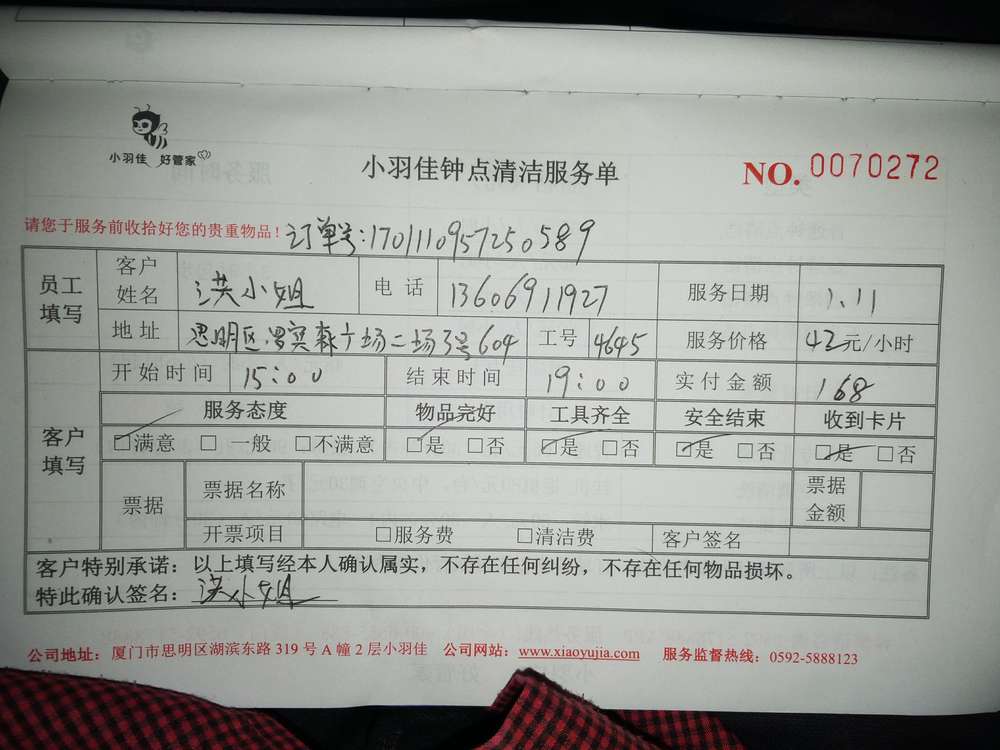 小羽佳 好管家
小羽佳钟点清洁服务单
NO. 0070272
请您于服务前收拾好您的贵重物品！订单号:1701110957250589
员工填写 客户姓名 洪小姐 电话 13606911927 服务日期 1.11
地址 思明区罗宾森广场二场3号604 工号 4645 服务价格 42元/小时
客户填写 开始时间 15:00 结束时间 19:00 实付金额 168
服务态度 物品完好 工具齐全 安全结束 收到卡片
□满意 □一般 □不满意 □是 □否 □是 □否 □是 □否 □是 □否
票据 票据名称 票据金额
开票项目 □服务费 □清洁费 客户签名
客户特别承诺：以上填写经本人确认属实，不存在任何纠纷，不存在任何物品损坏。
特此确认签名：洪小姐
公司地址：厦门市思明区湖滨东路 319 号 A 幢 2 层小羽佳 公司网站：www.xiaoyujia.com 服务监督热线：0592-5888123